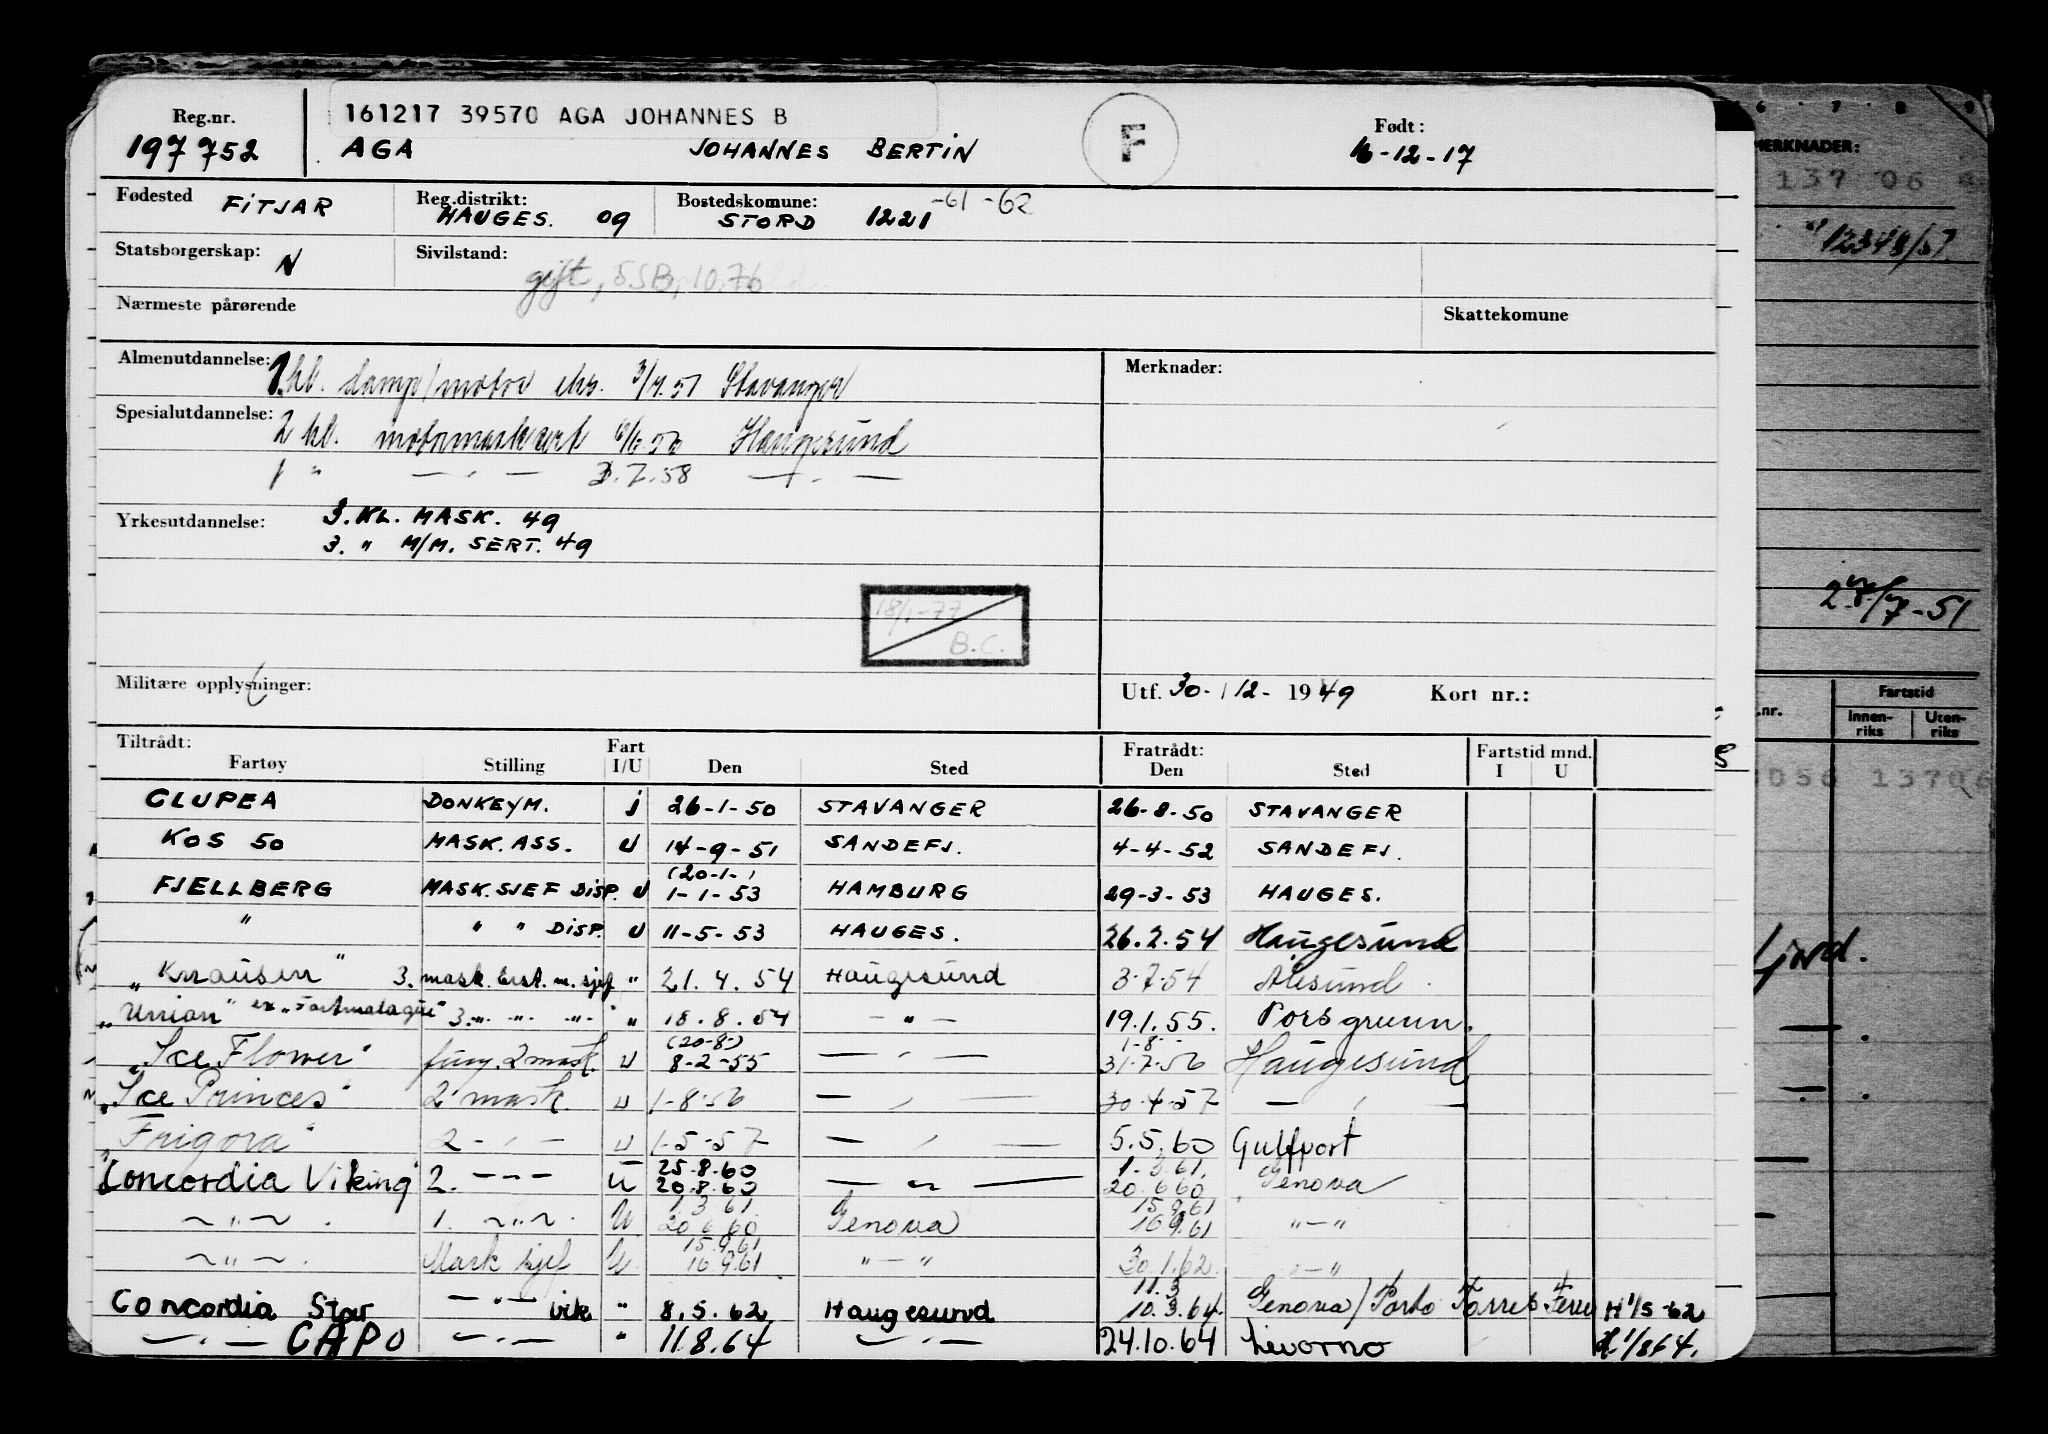 Reg.nr. 197752
161217 39570 AGA JOHANNES B
AGA JOHANNES BERTIN
F
Født: 16-12-17
Fødested FITJAR
Reg.distrikt: HAUGES. 09
Bostedskomune: STORD 1221 -61 -62
Statsborgerskap: N
Sivilstand: gift,
Nærmeste pårørende
Skattekomune
Almenutdannelse: 1. kl. damp/motor eks. 3/7.51 Stavanger
Merknader:
Spesialutdannelse: 2 kl. motormask sert 6/6.56 Haugesund
1 " — " — 3.7.58 — " —
Yrkesutdannelse: 3. KL. MASK. 49
3. " M/M. SERT. 49
18/1-77
B.C.
Militære opplysninger:
Utf. 30-12-1949 Kort nr.:
Tiltrådt: Fart Fratrådt: Fartstid mnd.
Fartøy Stilling I/U Den Sted Den Sted I U
CLUPEA DONKEYM. j 26-1-50 STAVANGER 26-8-50 STAVANGER
KOS 50 MASK. ASS. U 14-9-51 SANDEFJ. 4-4-52 SANDEFJ.
(20-1-)
FJELLBERG MASK.SJEF DISP. U 1-1-53 HAMBURG 29-3-53 HAUGES.
" " " DISP. U 11-5-53 HAUGES. 26.2.54 Haugesund
"Knausen" 3. mask. best. m. sjef " 21.4.54 Haugesund 3.7.54 Ålesund
"Union" ex "Fortmalagui" 3. " " " " 18.8.54 — " — 19.1.55. Porsgrunn.
(20-8-) 1-8-
"Ice Flower" fung. 2 mask. U 8-2-55 — " — 31.7.56 Haugesund
"Ice Princes" 2 mask. U 1-8-56 — " — 30-4-57 — " —
"Frigora" 2 - " - U 1-5-57 — " — 5.5.60 Gulfport
25.8.60 1.3.61.
"Concordia Viking" 2. — " — U 20.8.60 — " — 20.6.60 Genova
1.3.61 15.9.61
~ " ~ 1. ~ " ~ U 20.6.60 Genova 16.9.61 " — "
15.9.61
~ " ~ Mask sjef U 16.9.61 " — " 30.1.62. " — "
11.3
Concordia Star — " — vik " 8.5.62 Haugesund 10.3.64. Genova/Porto Torres H 1/5-62
— " — CAPO — " — " 11.8.64 — " — 24.10.64 Livorno H 1/8 64.
6 7 8 9
MERKNADER:
137 06
12348/51.
2/7-51
nr. Fartstid
Innen-riks Uten-riks
1050 13706
fjord.